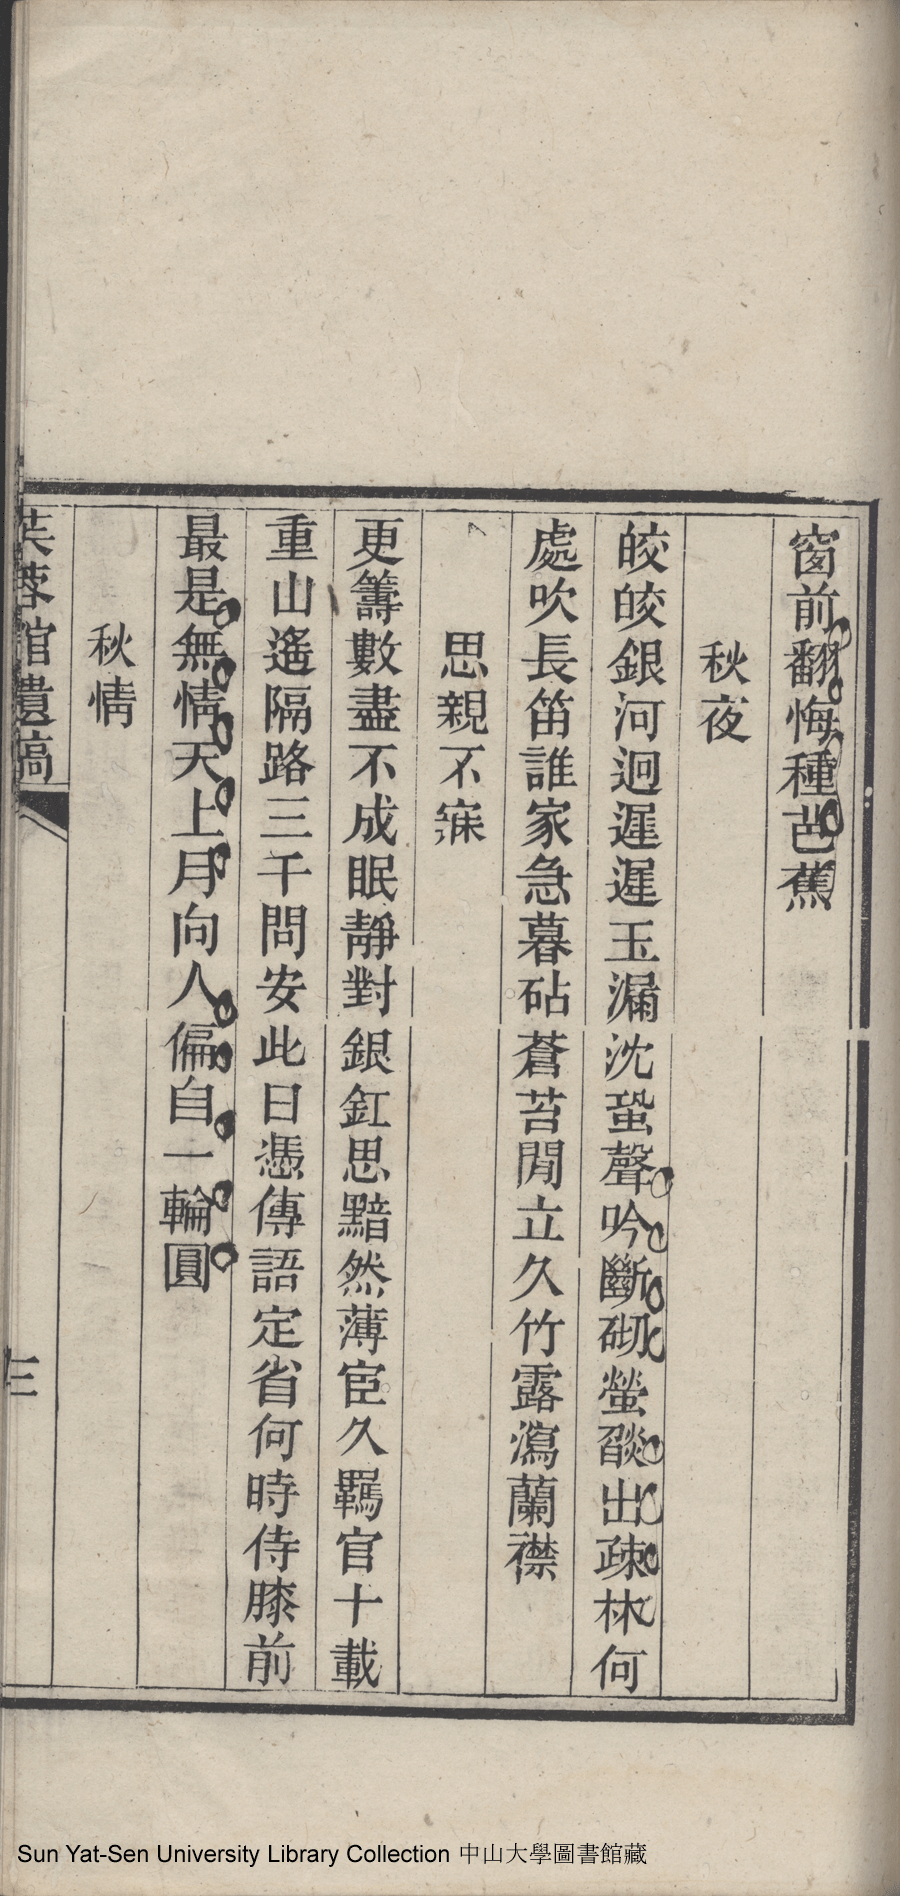 窗前翻悔種芭蕉
秋夜
皎皎銀河迥遲遲玉漏沈蛩聲吟斷砌螢燄出疎林何
處吹長笛誰家急暮砧蒼苔閒立久竹露瀉蘭襟
思親不寐
更籌數盡不成眠靜對銀釭思黯然薄宦久羈官十載
重山遙隔路三千問安此日憑傳語定省何時侍膝前
最是無情天上月向人偏自一輪圓
秋情
芙蓉館遺稿
三
Sun Yat-Sen University Library Collection 中山大學圖書館藏